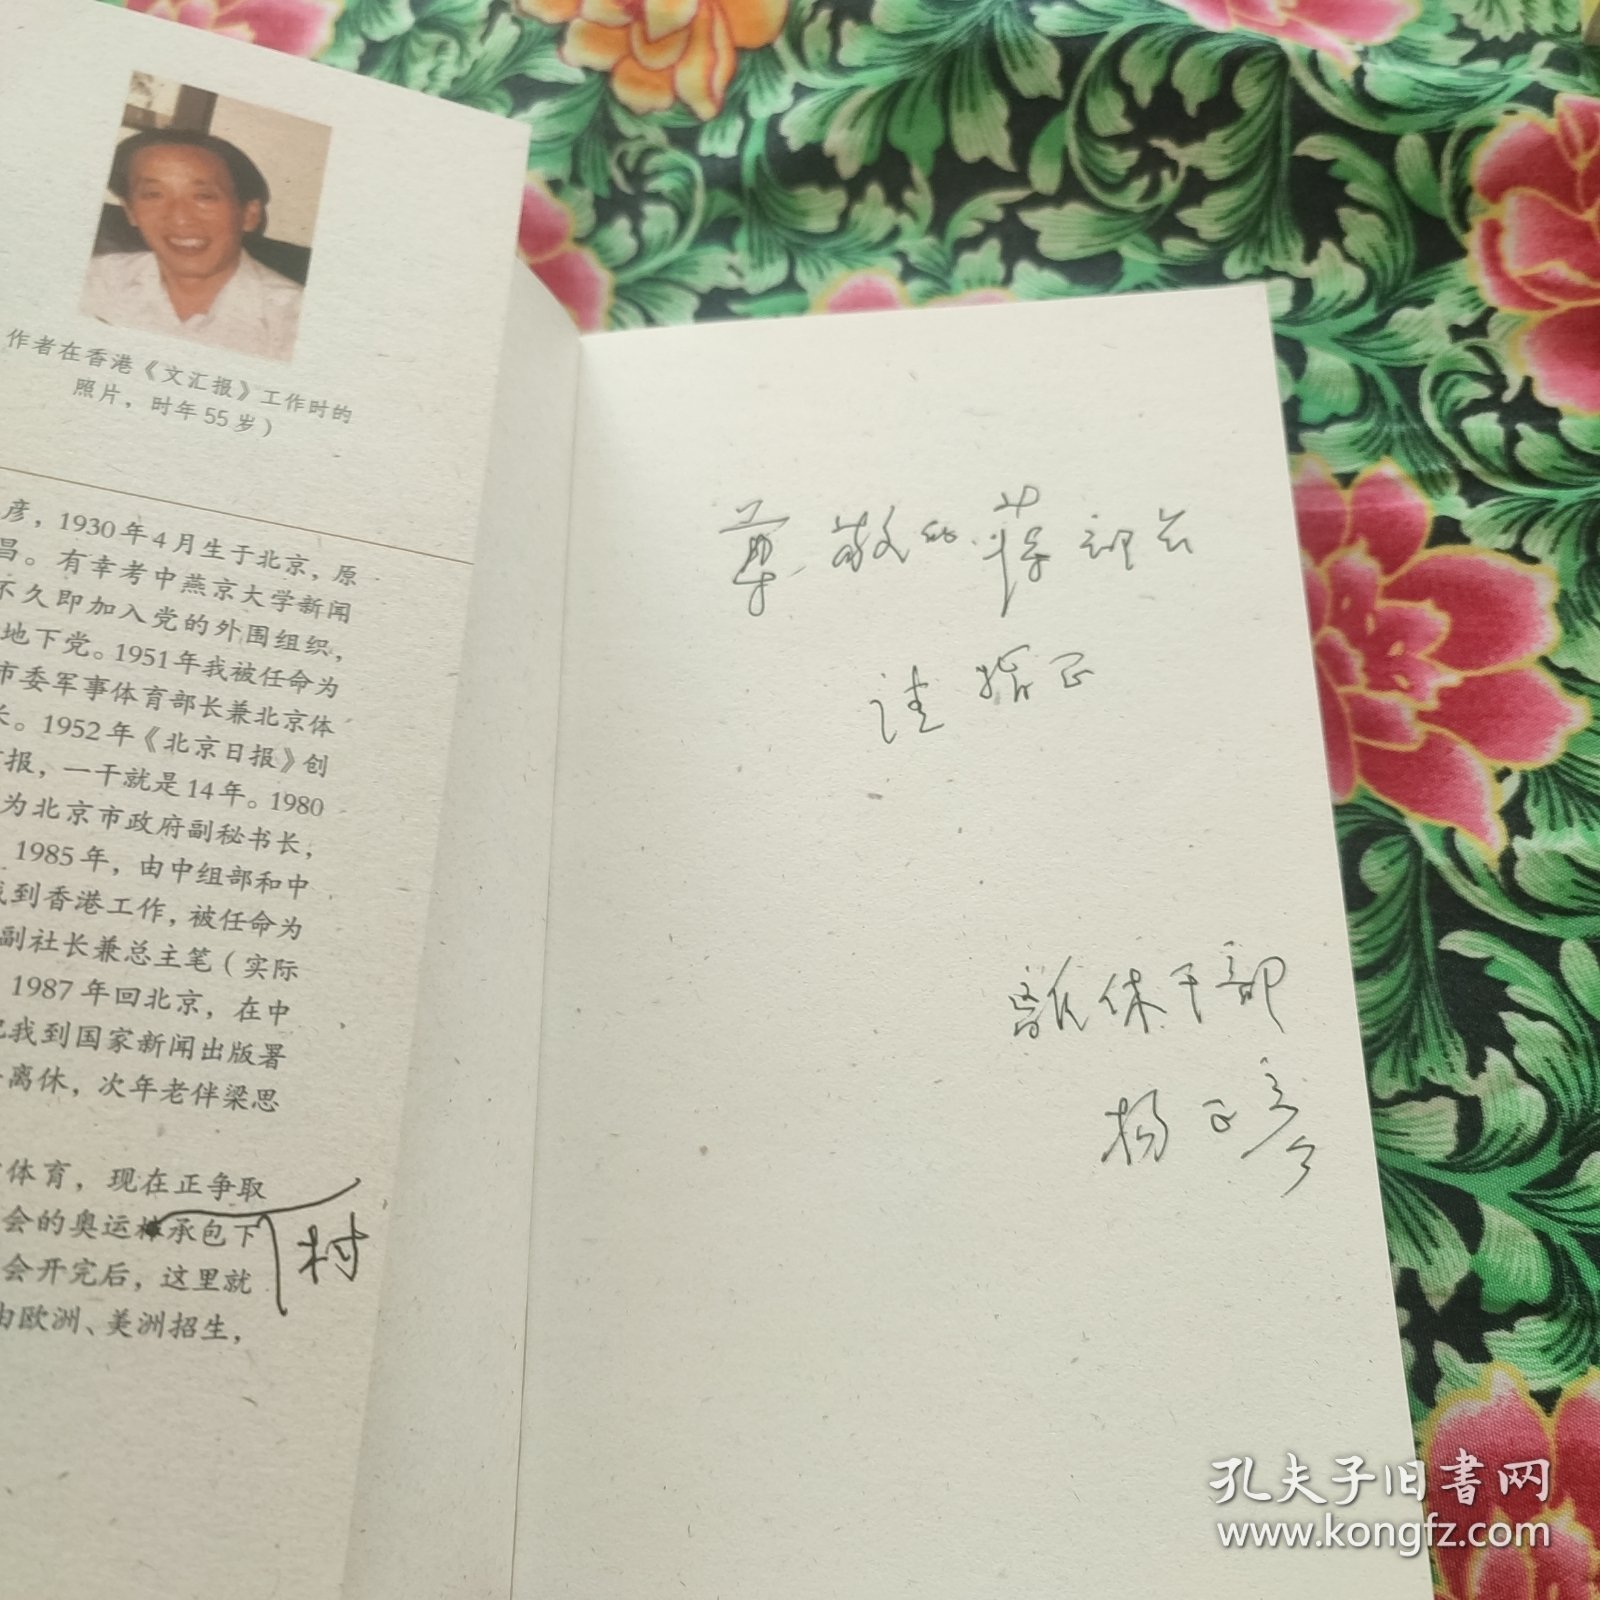 作者在香港《文汇报》工作时的
照片，时年55岁）
彦，1930年4月生于北京，原
昌。有幸考中燕京大学新闻
不久即加入党的外围组织，
地下党。1951年我被任命为
市委军事体育部长兼北京体
长。1952年《北京日报》创
报，一干就是14年。1980
为北京市政府副秘书长，
1985年，由中组部和中
我到香港工作，被任命为
副社长兼总主笔（实际
1987年回北京，在中
我到国家新闻出版署
离休，次年老伴梁思
体育，现在正争取
会的奥运 承包下
村
会开完后，这里就
由欧洲、美洲招生，
尊敬的蒋
请指正
離休干部
杨正彦
孔夫子旧书网
www.kongfz.com